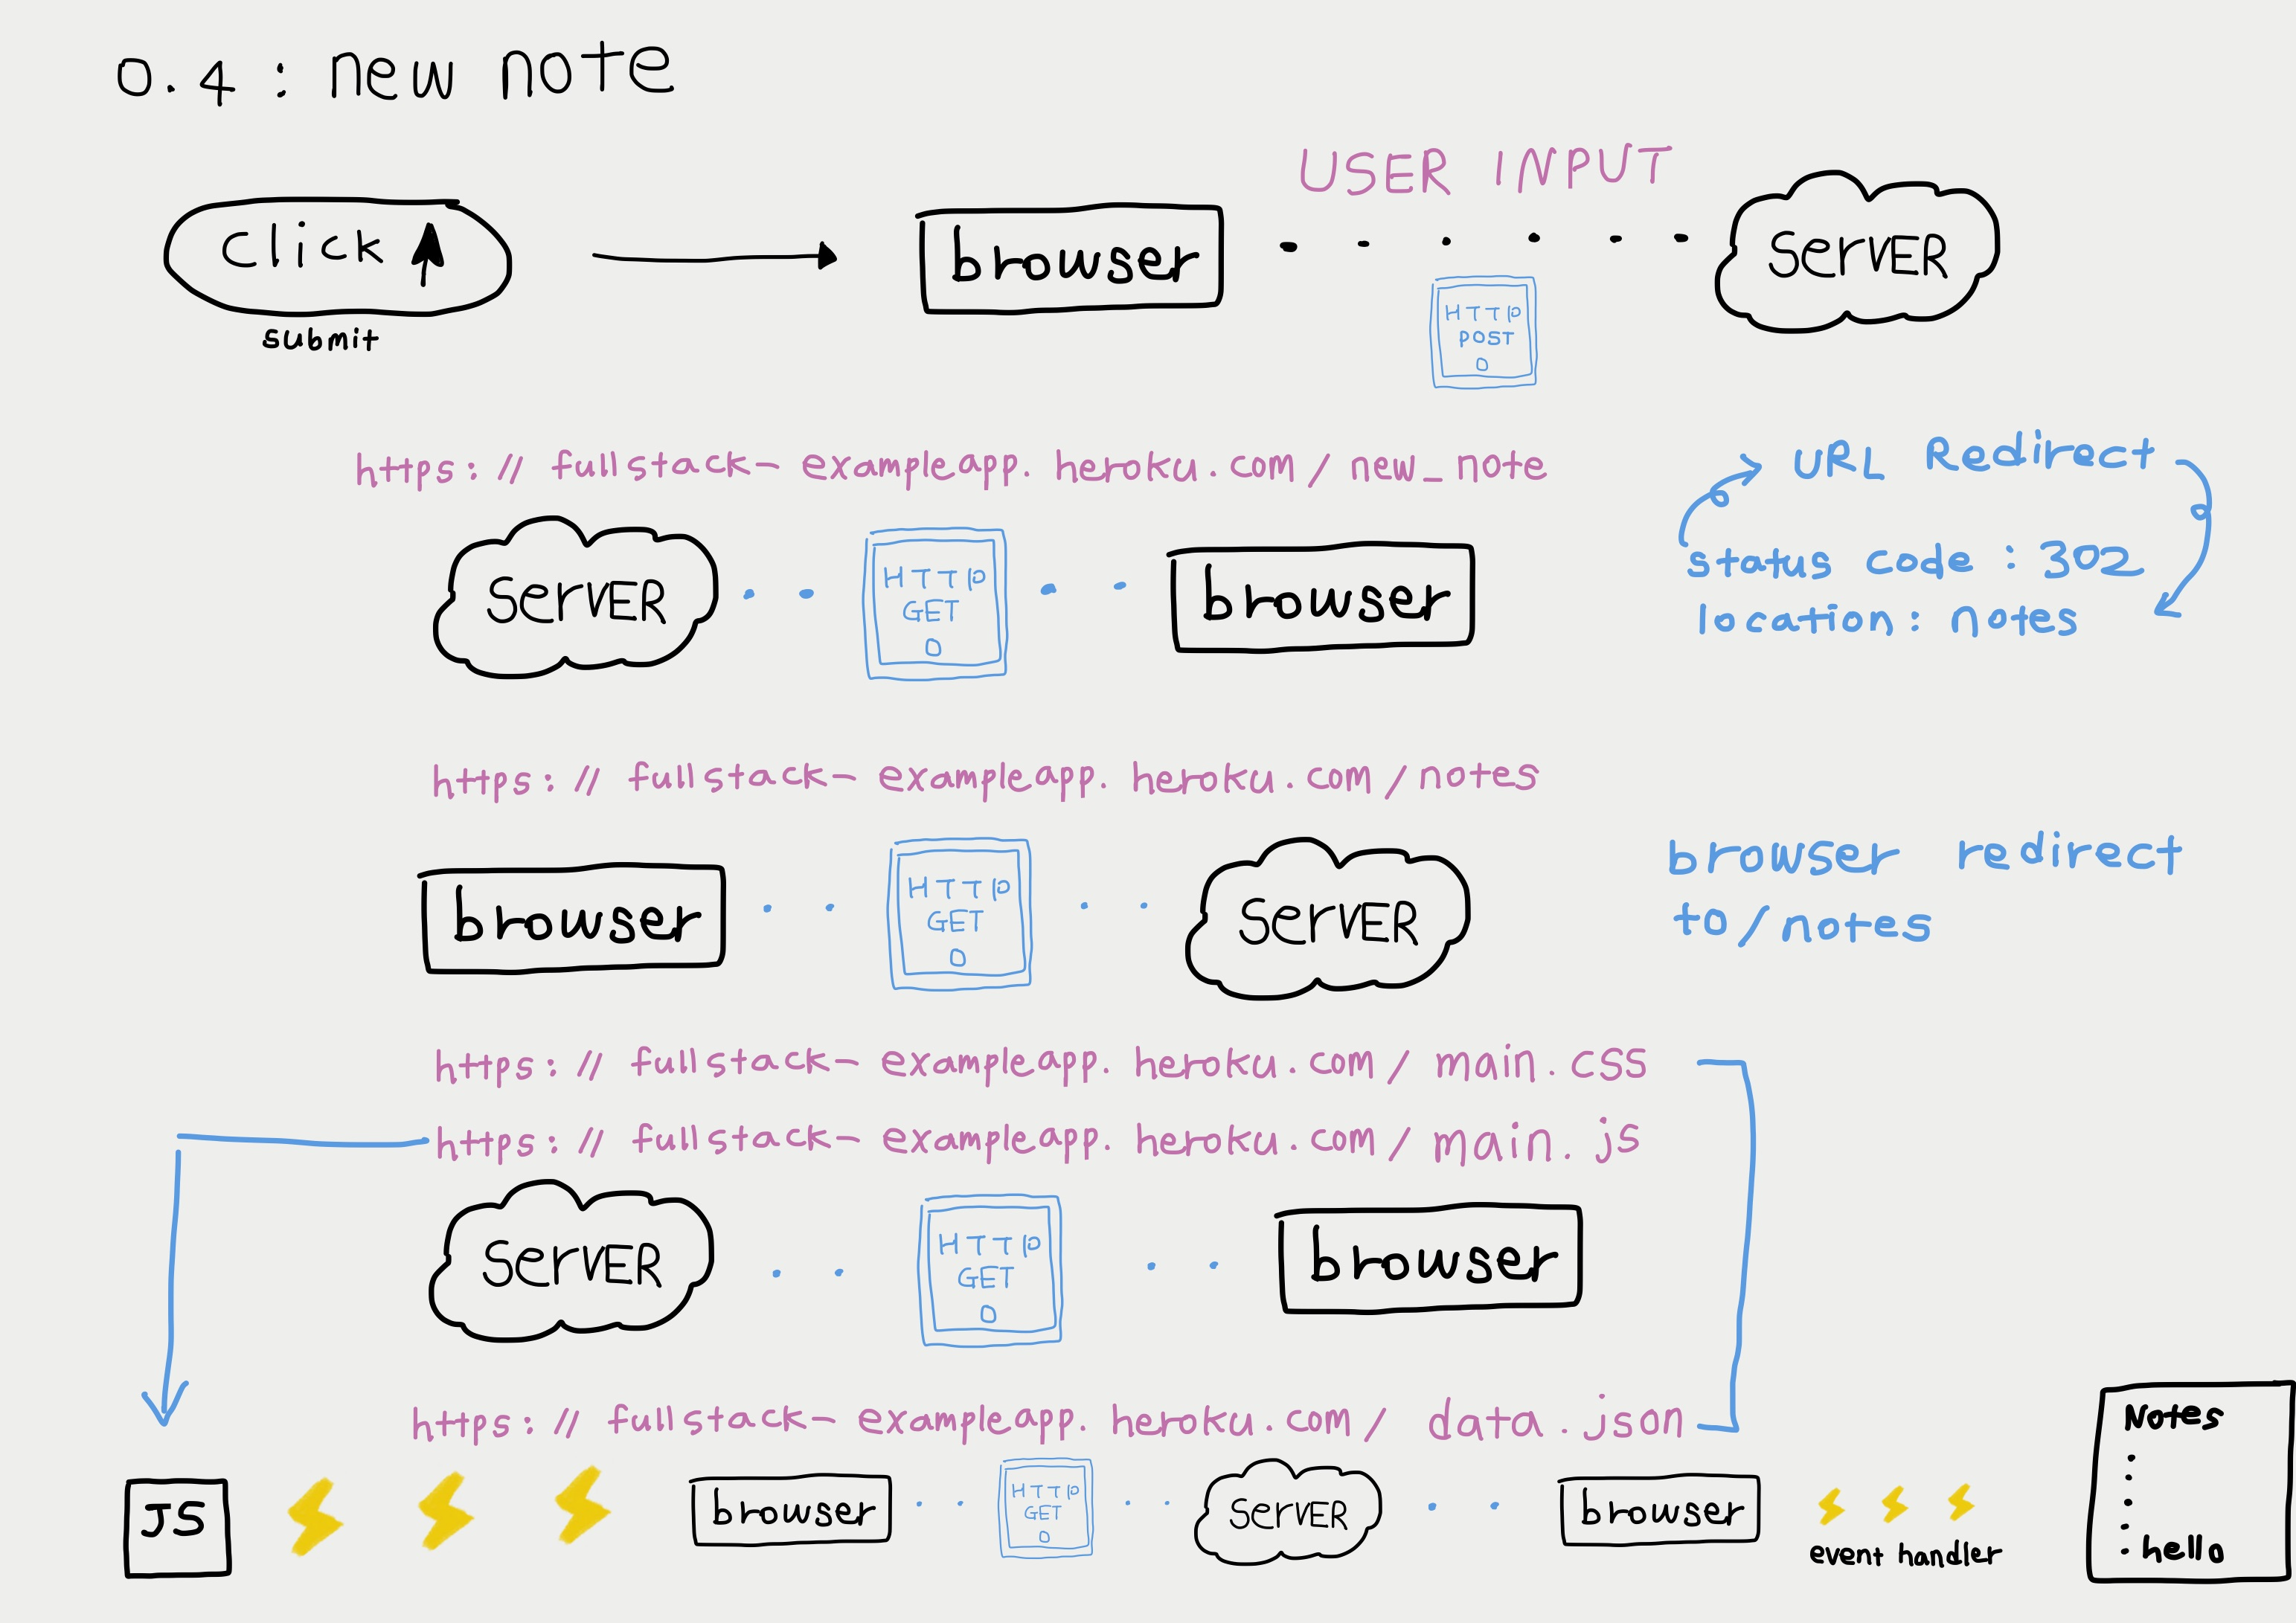 0.4 : new note
USER INPUT
click
browser
SerVER
submit
HTTP
POST
https: // fullstack- exampleapp. heroku.com / new_note
URL Redirect
SerVER
HTTP
GET
browser
status code : 302
location: notes
https: // fullstack- exampleapp. heroku.com /notes
browser
HTTP
GET
SerVER
browser redirect
to /notes
https: // fullstack- exampleapp. heroku.com / main.css
https: // fullstack- exampleapp. heroku.com / main.js
SerVER
HTTP
GET
browser
https: // fullstack- exampleapp. heroku.com / data.json
JS
browser
HTTP
GET
SerVER
browser
event handler
Notes
.
.
.
.
. hello